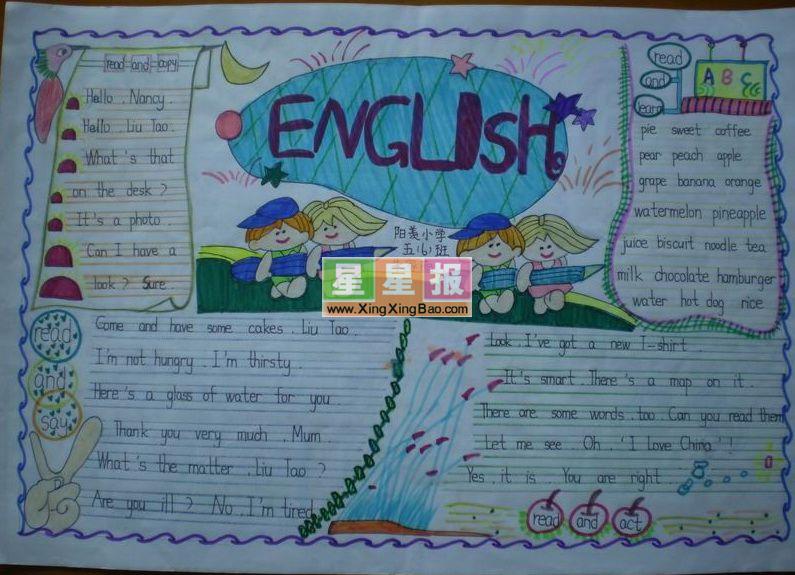 read and copy
Hello . Nancy .
Hello . Liu Tao .
What 's that
on the desk ?
It's a photo
Can I have a
look ? Sure .
ENGLISH
阳羡小学
五(6)班
星星报
www.XingXingBao.com
read
and
learn
A B C
pie sweet coffee
pear peach apple
grape banana orange
watermelon pineapple
juice biscuit noodle tea
milk chocolate hamburger
water hot dog rice
read
and
say
Come and have some cakes . Liu Tao .
I'm not hungry . I'm thirsty .
Here 's a glass of water for you .
Thank you very much . Mum .
What 's the matter . Liu Tao ?
Are you ill ? No . I'm tired
Look . I've got a new T-shirt
It's smart . There 's a map on it .
There are some words . too Can you read them
Let me see . Oh . ' I Love China ' !
Yes . it is You are right .
read and act